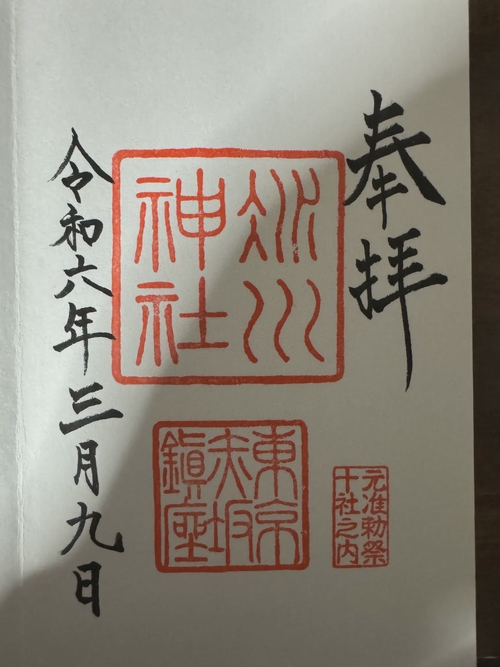 奉拝
氷川
神社
東京
赤坂
鎮座
元准勅祭
十社之内
令和六年三月九日